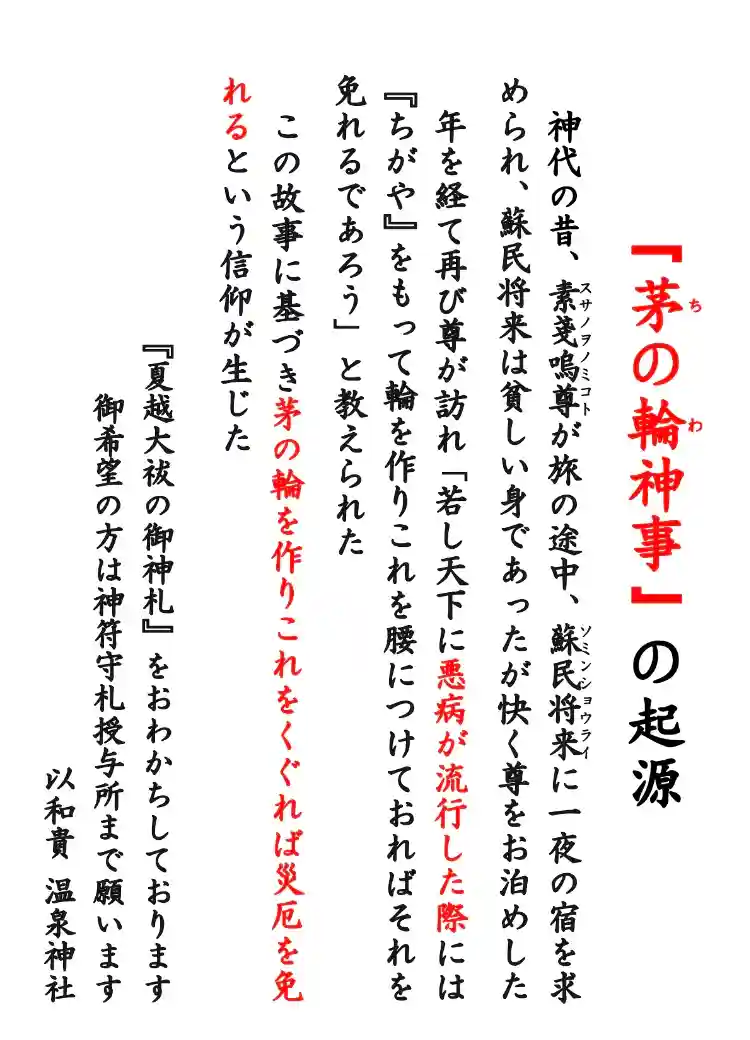 『茅の輪神事』の起源
ち わ
神代の昔、素戔嗚尊が旅の途中、蘇民将来に一夜の宿を求
スサノヲノミコト ソミンショウライ
められ、蘇民将来は貧しい身であったが快く尊をお泊めした
年を経て再び尊が訪れ「若し天下に悪病が流行した際には
『ちがや』をもって輪を作りこれを腰につけておればそれを
免れるであろう」と教えられた
この故事に基づき茅の輪を作りこれをくぐれば災厄を免
れるという信仰が生じた
『夏越大祓の御神札』をおわかちしております
御希望の方は神符守札授与所まで願います
以和貴 温泉神社